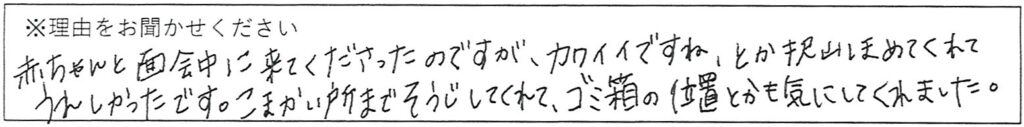 ※理由をお聞かせください
赤ちゃんと面会中に来てくださったのですが、カワイイですね、とか沢山ほめてくれて
うれしかったです。こまかい所までそうじしてくれて、ゴミ箱の位置とかも気にしてくれました。